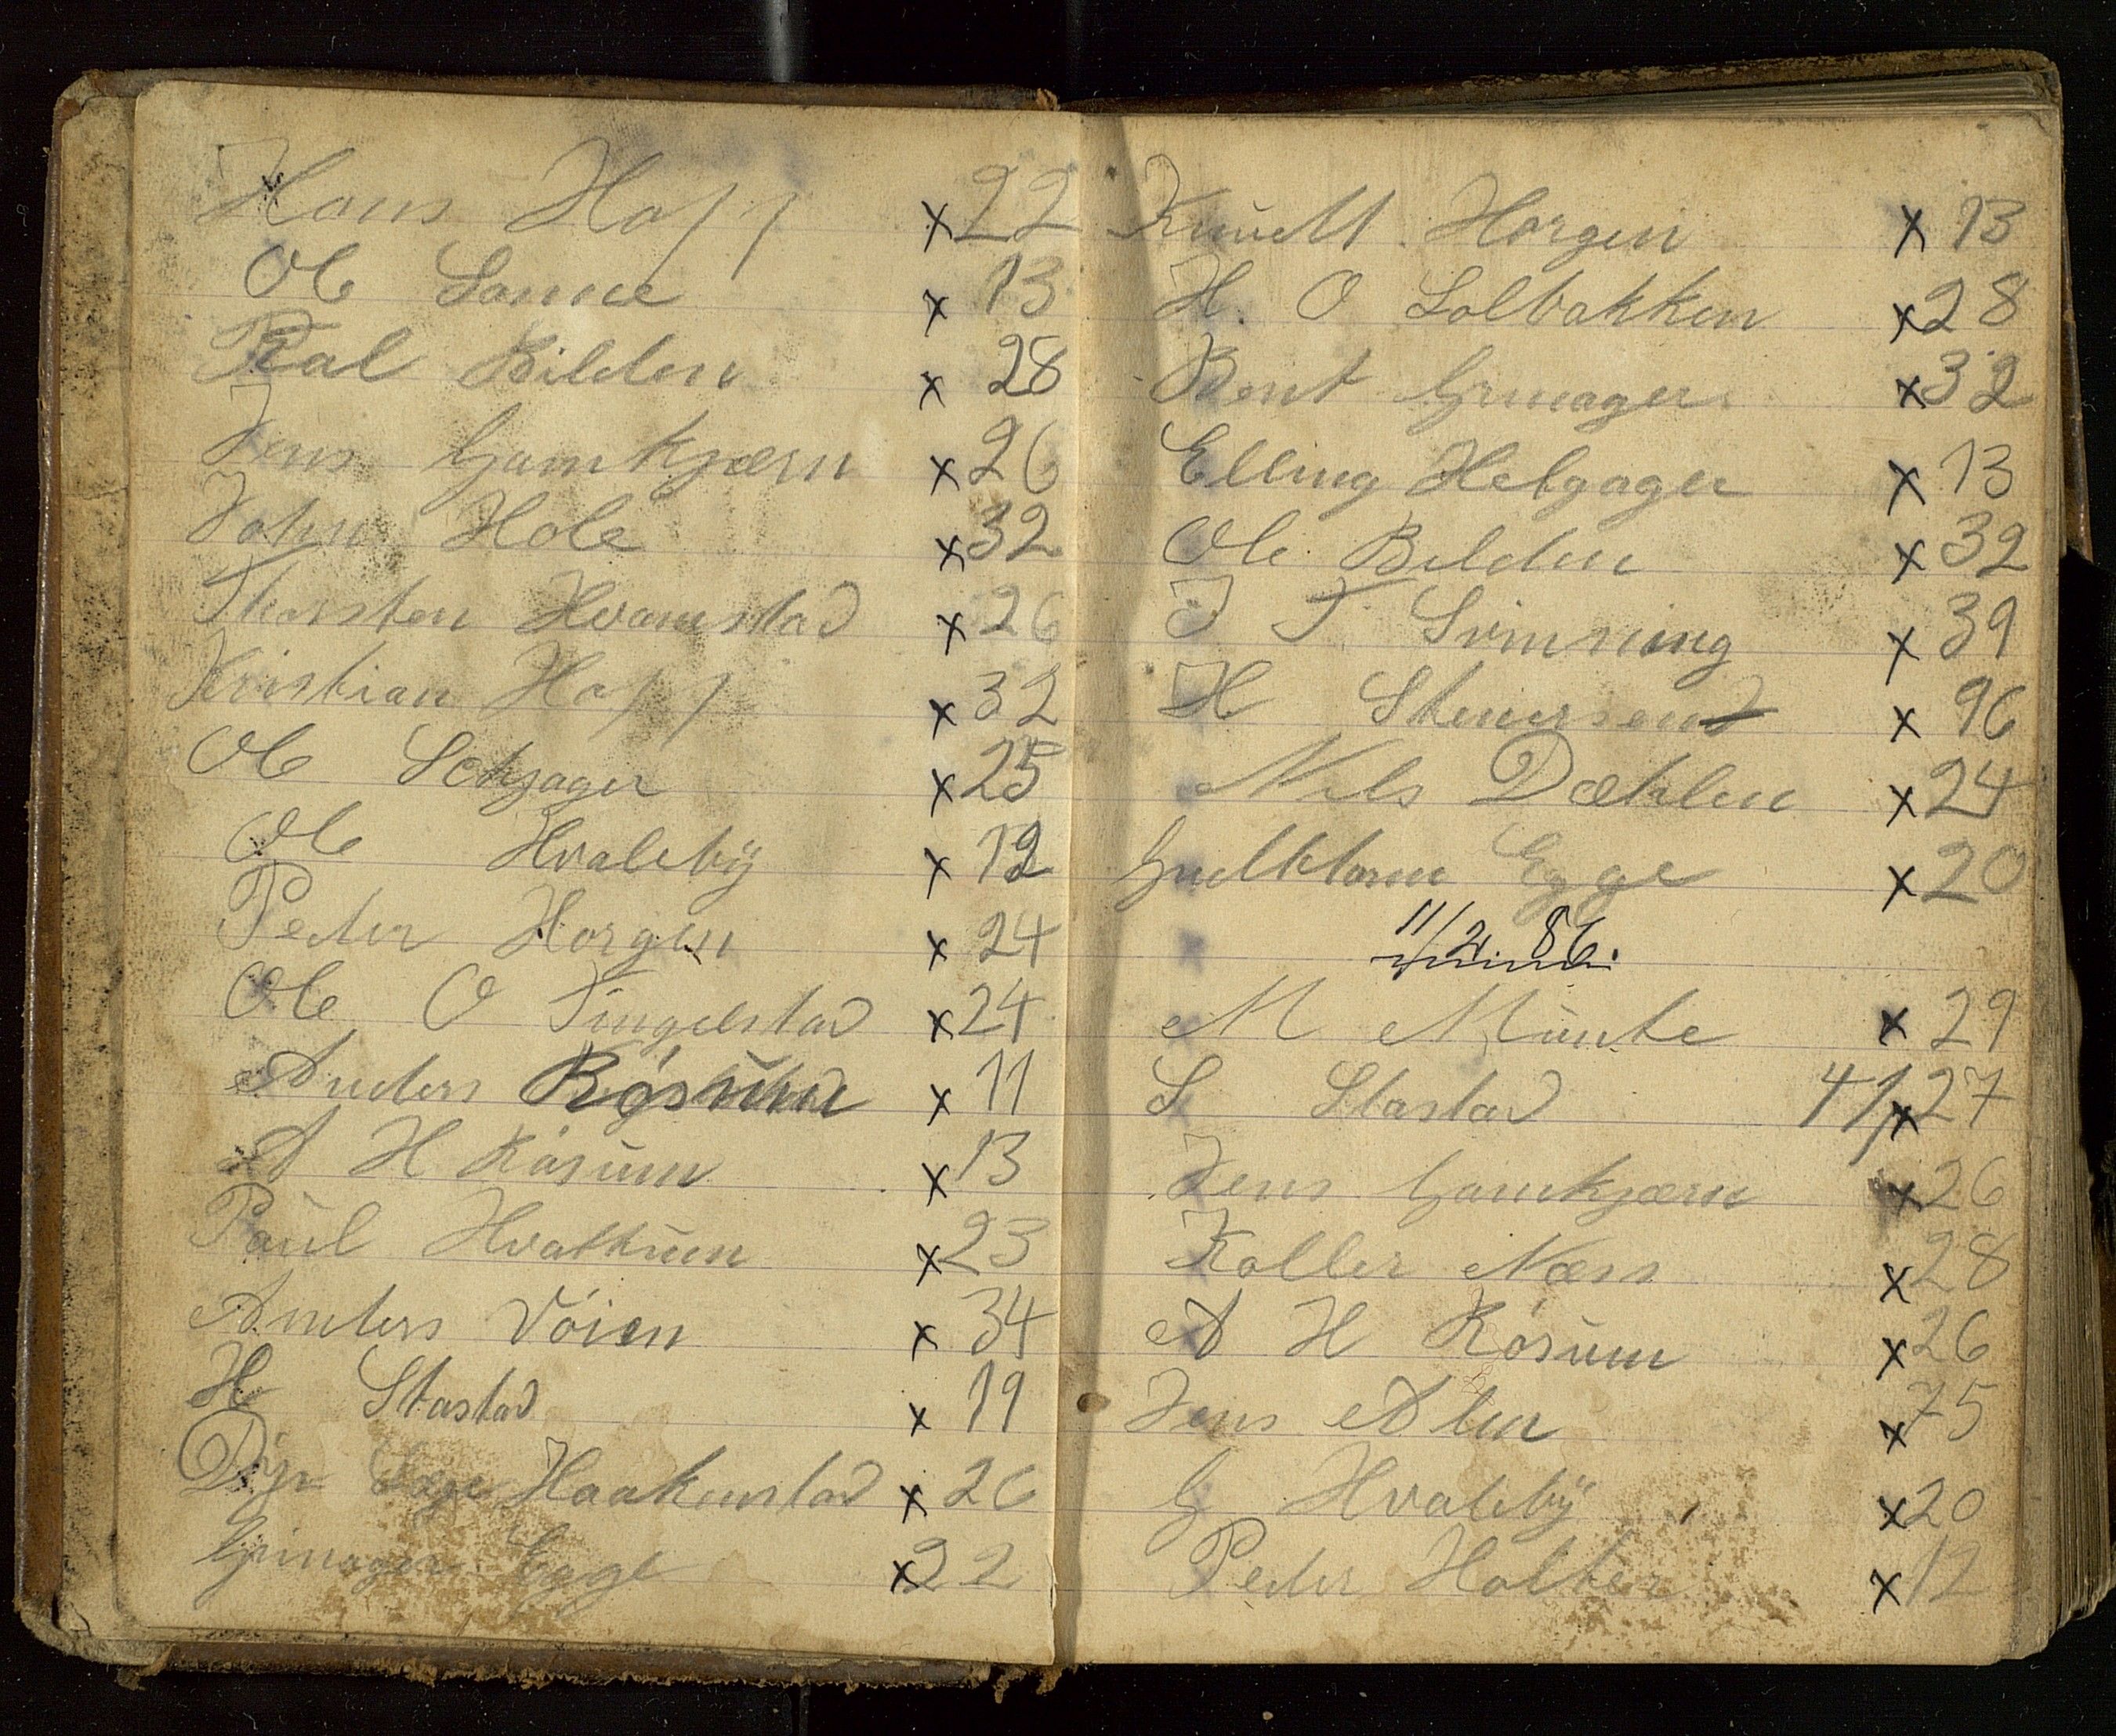 Hans Hopp x 22
Ole Sanne x 13
Paal Bilden x 28
Jens Gamkjærn x 26
John Hole x 32
Thorsten Hvamstad x 26
Kristian Hopp x 32
Ole Sekjager x 25
Ole Hvaleby x 12
Peder Horgen x 24
Ole O Tingelstad x 24
Anders Røsum x 11
A H Røsum x 13
Paul Hvattum x 23
Anders Vøien x 34
H Stastad x 19
Haakenstad x 26
Grinager Egge x 22
Knut Horgen x 13
H. O Solbakken x 28
Bent Grinager x 32
Elling Helgager x 13
Ole Bilden x 32
J T Svinning x 39
H Stenersen x 96
Nils Dæhlen x 24
Guldbran Egge x 20
11/2 86.
M Munte x 29
S Stastad 41/x 27
Jens Gamkjærn x 26
Koller Næss x 28
A H Røsum x 26
Jens Alm x 75
G Hvaleby x 20
Peder Holter x 12